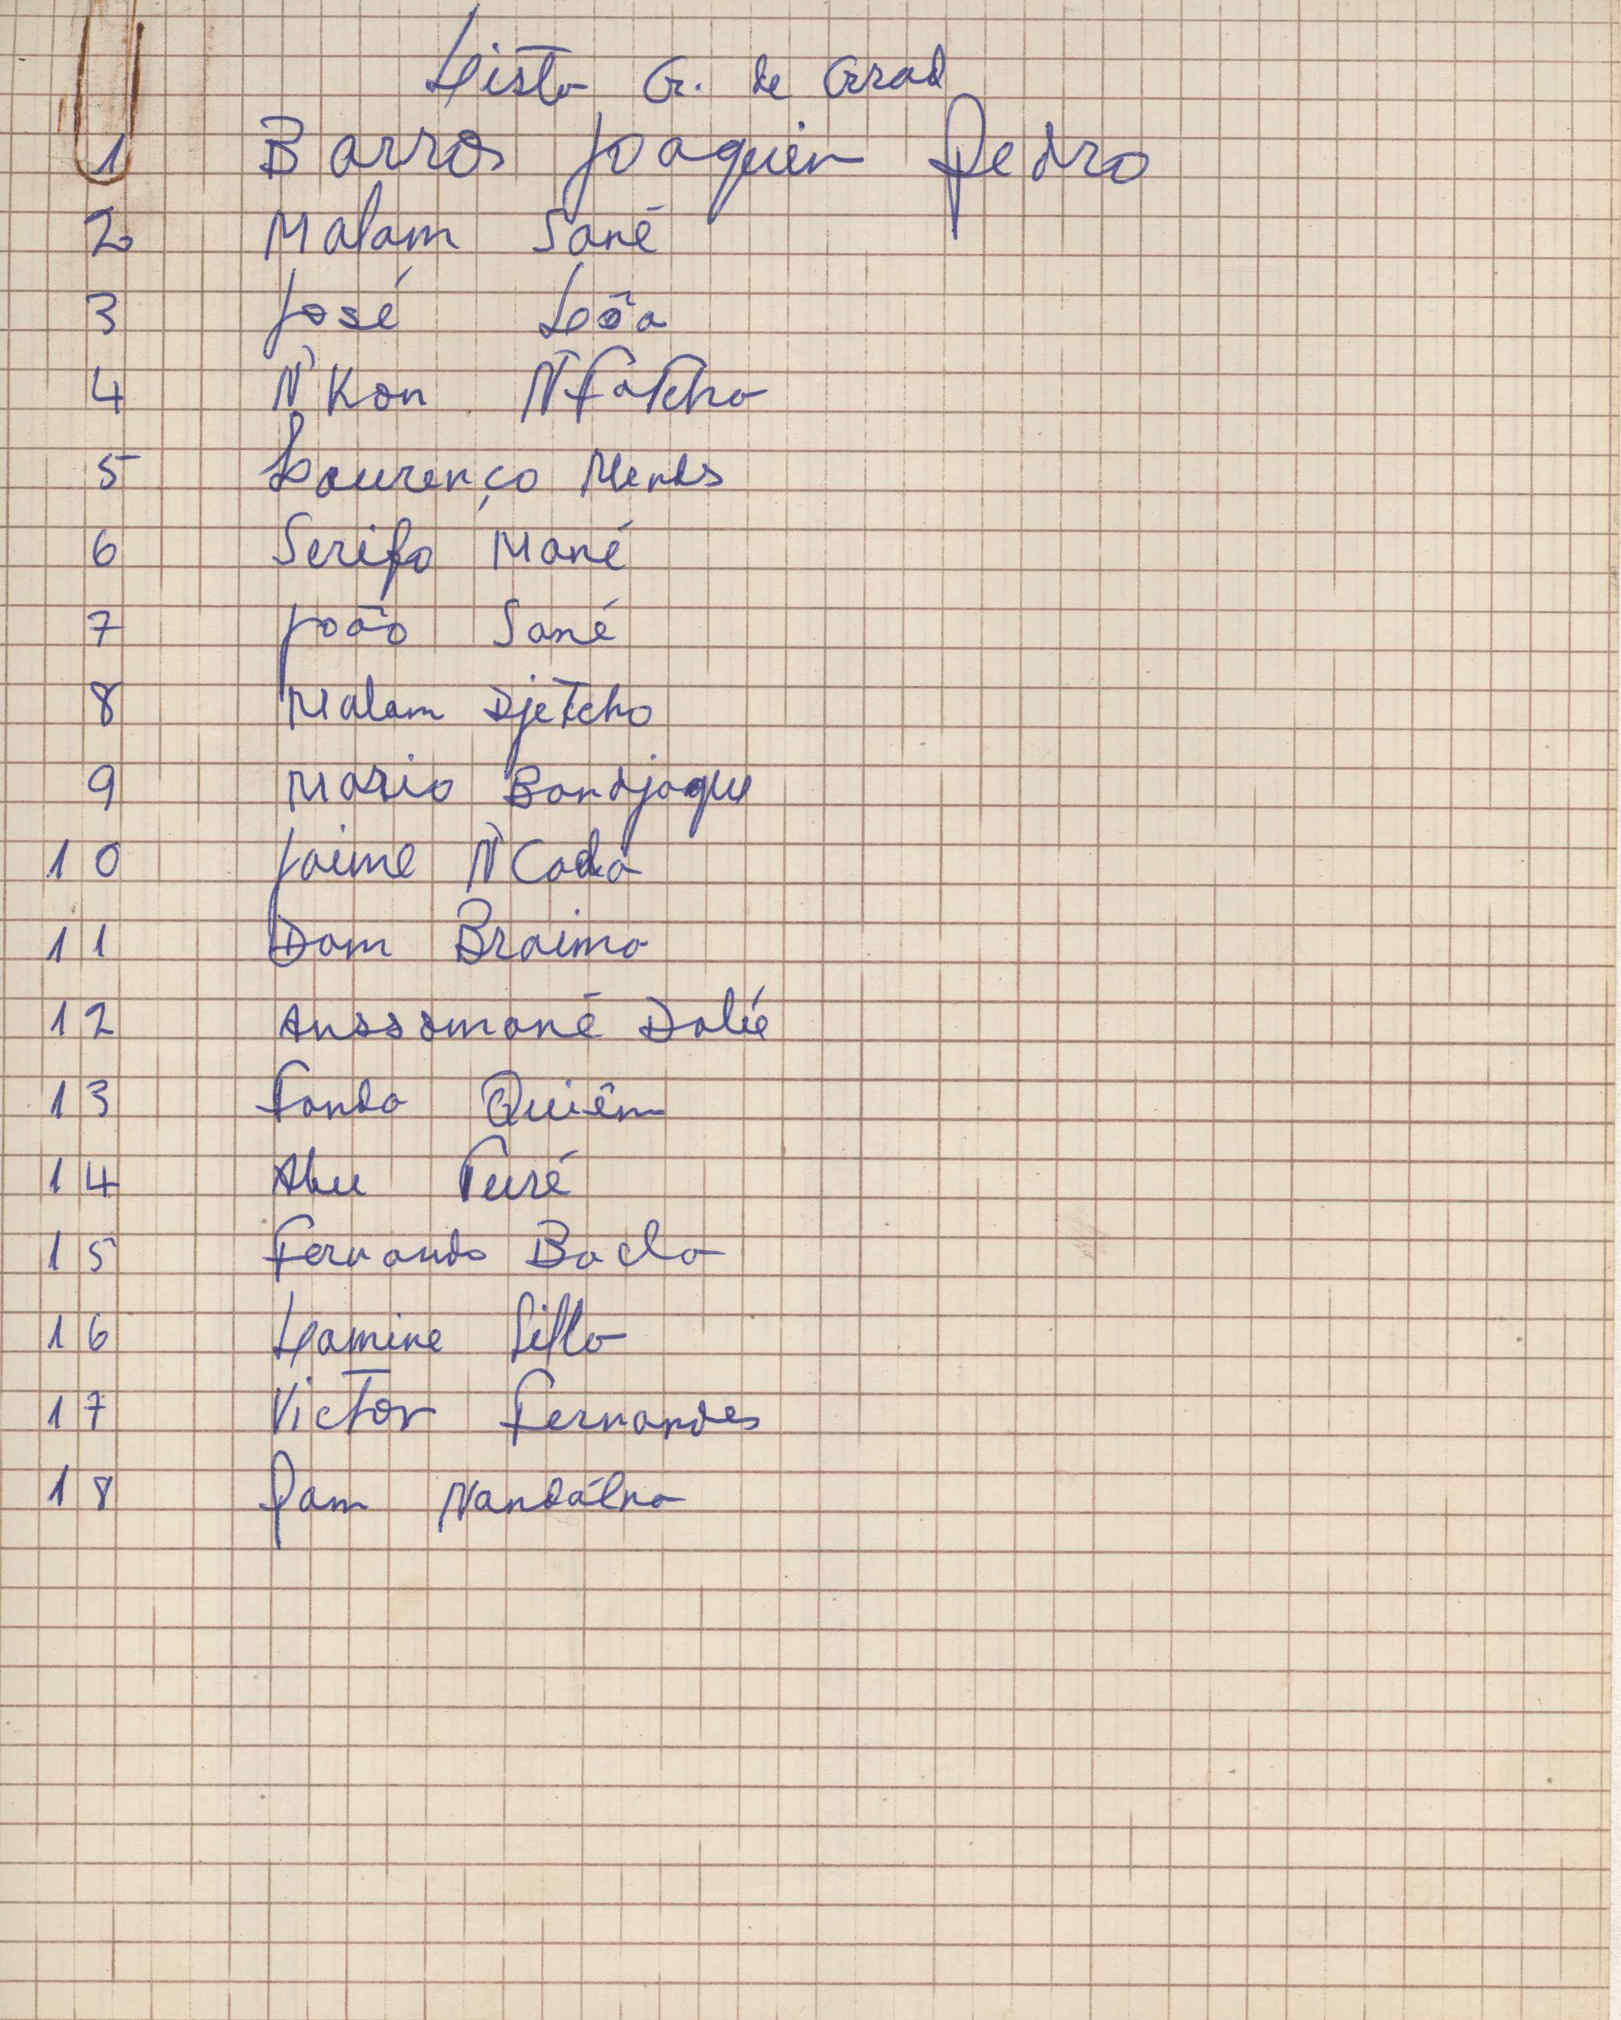 Lista G. de Grad
1 Barros Joaquim Pedro
2 Malam Sané
3 José Lôa
4 N'Kon N'fatcha
5 Lourenço Mends
6 Serifo Mané
7 João Sané
8 Malam Djetcho
9 Mario Bandjaque
10 Jaime N'Cada
11 Dam Braima
12 Anssumané Dabé
13 Fanda Quiêm
14 Abu Turé
15 Fernando Bacla
16 Lamine Silla
17 Victor Fernandes
18 Pam Nandálna